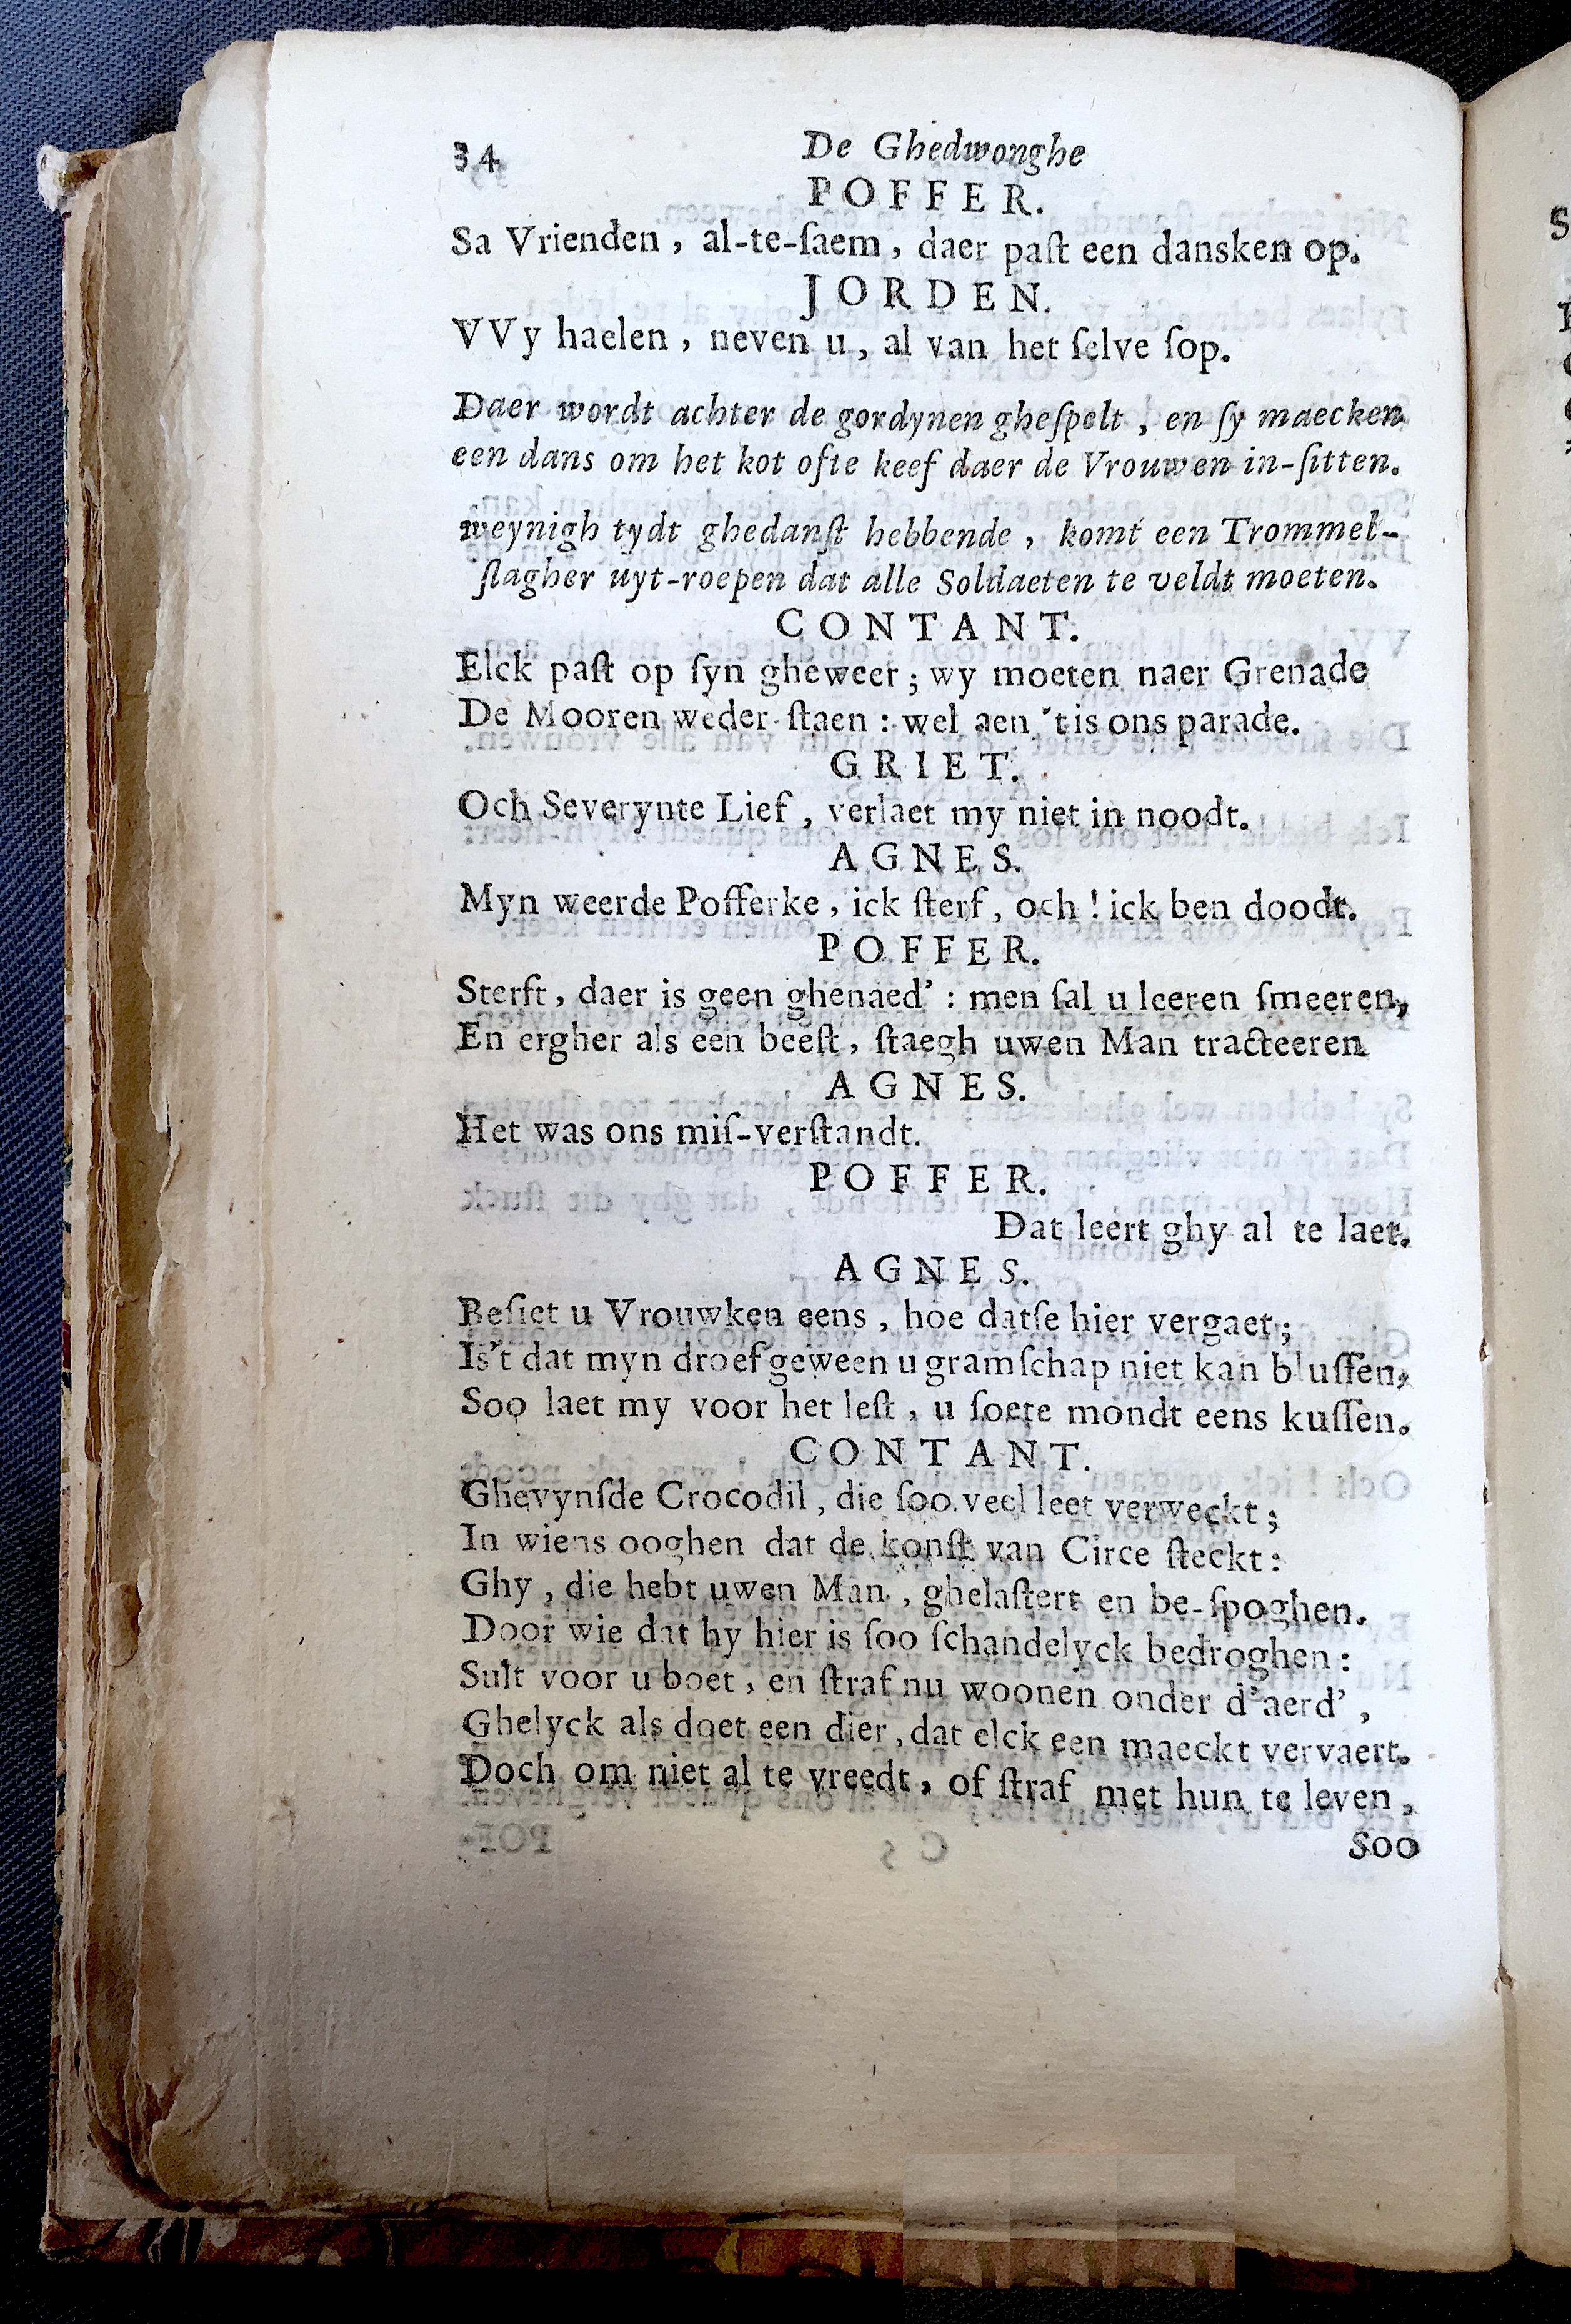 34 De Ghedwonghe
POFFER.
Sa Vrienden, al-te-ſaem, daer paſt een dansken op.
JORDEN.
VVy haelen, neven u, al van het ſelve ſop.
Daer wordt achter de gordynen gheſpelt, en ſy maecken
een dans om het kot ofte keef daer de Vrouwen in-ſitten.
weynigh tydt ghedanſt hebbende, komt een Trommel-
ſlagher uyt-roepen dat alle Soldaeten te veldt moeten.
CONTANT.
Elck paſt op ſyn gheweer; wy moeten naer Grenade
De Mooren weder ſtaen: wel aen 't is ons parade.
GRIET.
Och Severynte Lief, verlaet my niet in noodt.
AGNES.
Myn weerde Pofferke, ick ſterf, och! ick ben doodt.
POFFER.
Sterft, daer is geen ghenaed': men ſal u leeren ſmeeren,
En ergher als een beeſt, ſtaegh uwen Man tracteeren
AGNES.
Het was ons miſ-verſtandt.
POFFER.
Dat leert ghy al te laet.
AGNES.
Beſiet u Vrouwken eens, hoe datſe hier vergaet;
Is't dat myn droef geween u gramſchap niet kan bluſſen,
Soo laet my voor het leſt, u ſoete mondt eens kuſſen.
CONTANT.
Ghevynſde Crocodil, die ſoo veel leet verweckt;
In wiens ooghen dat de konſt van Circe ſteckt:
Ghy, die hebt uwen Man, ghelaſtert en be-ſpoghen.
Door wie dat hy hier is ſoo ſchandelyck bedroghen:
Sult voor u boet, en ſtraf nu woonen onder d'aerd',
Ghelyck als doet een dier, dat elck een maeckt vervaert.
Doch om niet al te vreedt, of ſtraf met hun te leven,
Soo